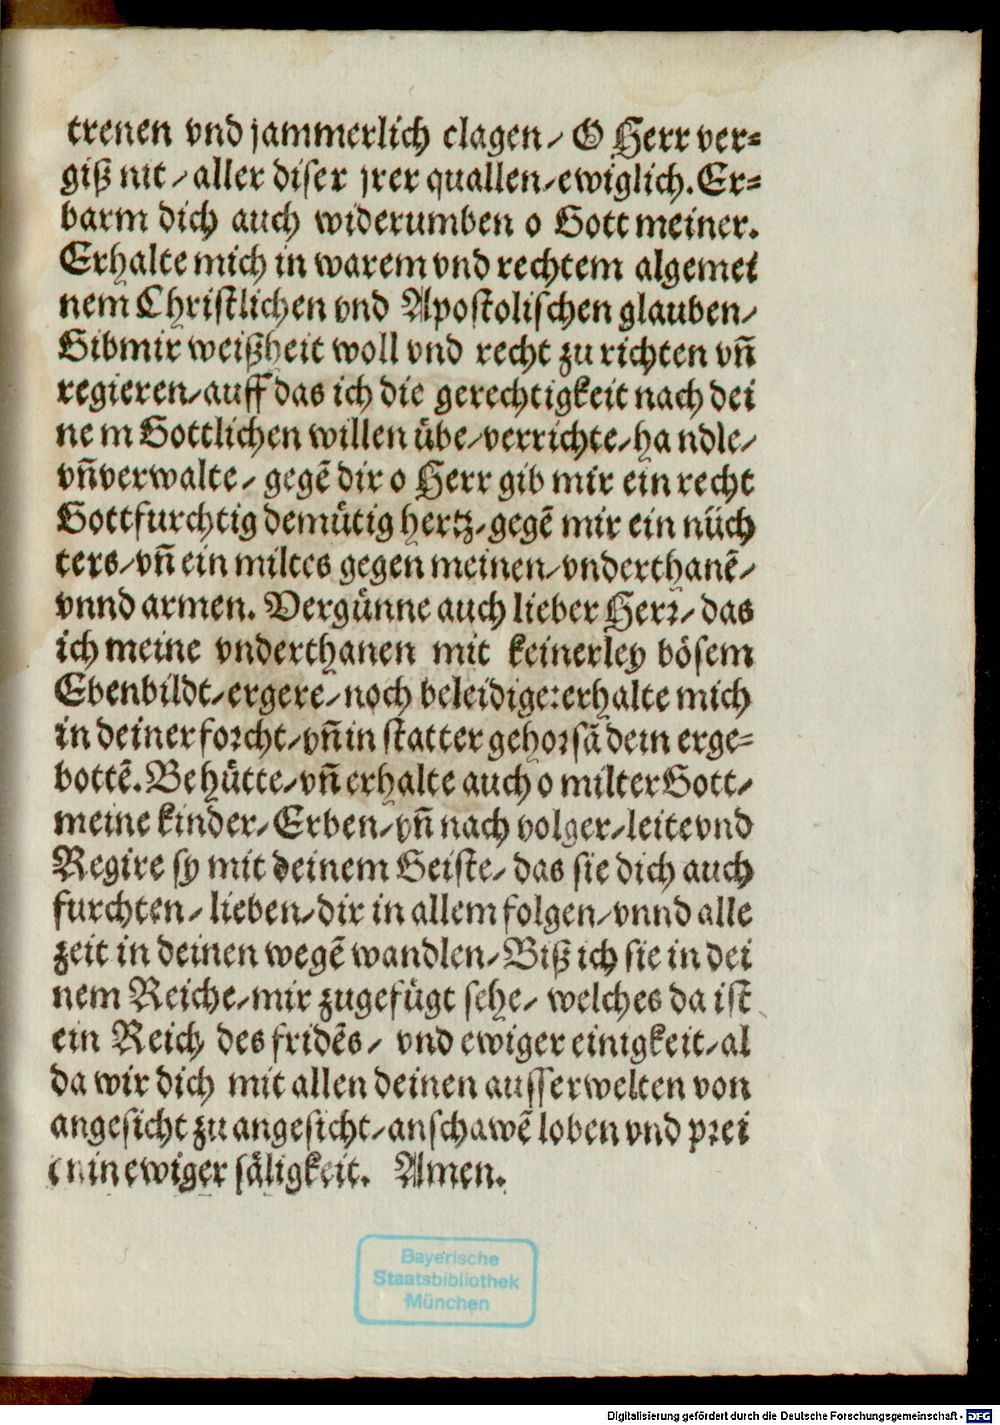 trenen vnd jammerlich clagen / O Herr ver=
giß nit / aller diser jrer quallen / ewiglich. Er=
barm dich auch widerumben o Gott meiner.
Erhalte mich in warem vnd rechtem algemei
nem Christlichen vnd Apostolischen glauben /
Gib mir weißheit woll vnd recht zu richten vn̄
regieren / auff das ich die gerechtigkeit nach dei
nem Gottlichen willen übe / verrichte / handle /
vn̄ verwalte / gegē dir o Herr gib mir ein recht
Gottfurchtig demütig hertz / gegē mir ein nüch
ters / vn̄ ein miltes gegen meinen / vnderthanē /
vnnd armen. Vergünne auch lieber Herr / das
ich meine vnderthanen mit keinerley bösem
Ebenbildt / ergere / noch beleidige: erhalte mich
in deiner forcht / vn̄ in statter gehorsā dein erge=
bottē. Behütte / vn̄ erhalte auch o milter Gott /
meine kinder / Erben / vn̄ nach volger / leite vnd
Regire sy mit deinem Geiste / das sie dich auch
furchten / lieben / dir in allem folgen / vnnd alle
zeit in deinen wegē wandlen / Biß ich sie in dei
nem Reiche / mir zugefügt sehe / welches da ist
ein Reich des fridēs / vnd ewiger einigkeit / al
da wir dich mit allen deinen ausserwelten von
angesicht zu angesicht / anschawē loben vnd prei
en in ewiger säligkeit. Amen.
Bayerische
Staatsbibliothek
München
Digitalisierung gefördert durch die Deutsche Forschungsgemeinschaft - DFG